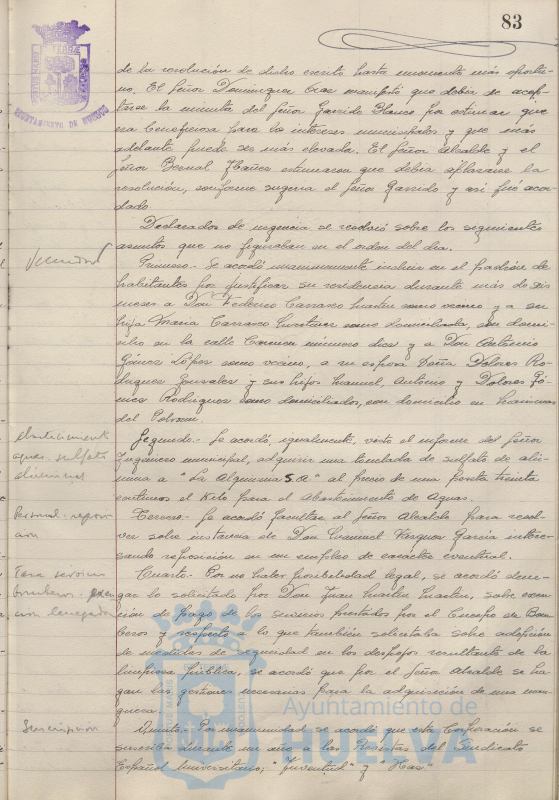 83
AYUNTAMIENTO DE HUELVA
de la resolución de dicho escrito hasta momento más oportu-
no. El Señor Dominguez Oras manifestó que debia de acep-
tarse la minuta del Señor Garrido Blanco por estimar que
era beneficiosa para los intereses municipales y que más
adelante puede ser más elevada. El Señor Alcalde y el
Señor Bernal Ibañez estimaron que debia aplazarse la
resolución, conforme sugeria el Señor Garrido y asi fué acor-
dado.
Declarados de urgencia se resolvió sobre los siguientes
asuntos que no figuraban en el orden del dia.
Vecindad
Primero.- Se acordó unanimemente incluir en el padrón de
habitantes por justificar su residencia durante más de seis
meses a Don Federico Carrasco Martin como vecino y a su
hija Maria Carrasco como domiciliada, con domi-
cilio en la calle Carmen número dos y a Don Antonio
Gómez López como vecino, a su esposa Doña Dolores Ro-
driguez Gonzalez y sus hijos Manuel, Antonio y Dolores Gó-
mez Rodriguez como domiciliados, con domicilio en Marismas
del Polvorin.
Abastecimiento
aguas. sulfato
alúmina
Segundo.- Se acordó, igualmente, visto el informe del Señor
Ingeniero municipal, adquirir una tonelada de sulfato de alú-
mina a "La Alquimia S.A" al precio de una peseta treinta
centimos el Kilo para el Abastecimiento de Aguas.
Personal. reposi-
ción
Tercero.- Se acordó facultar al Señor Alcalde para resol-
ver sobre instancia de Don Manuel Vazquez Garcia intere-
sando reposición en un empleo de carácter eventual.
Tasa servicio
bomberos. exen-
ción denegada
Cuarto.- Por no haber posibilidad legal, se acordó dene-
gar lo solicitado por Don Juan Martin, sobre exen-
ción de pago de los servicios prestados por el Cuerpo de Bom-
beros y respecto a lo que también solicitaba sobre adopción
de medidas de seguridad en los despojos resultante de la
limpieza pública, se acordó que por el Señor Alcalde se ha-
gan las gestiones necesarias para la adquisición de una man-
guera.
Suscripción
Quinto.- Por unanimidad se acordó que esta Corporación se
suscriba durante un año a las Revistas del Sindicato
Español Universitario, "Juventud" y "Haz"
Ayuntamiento de
HUELVA